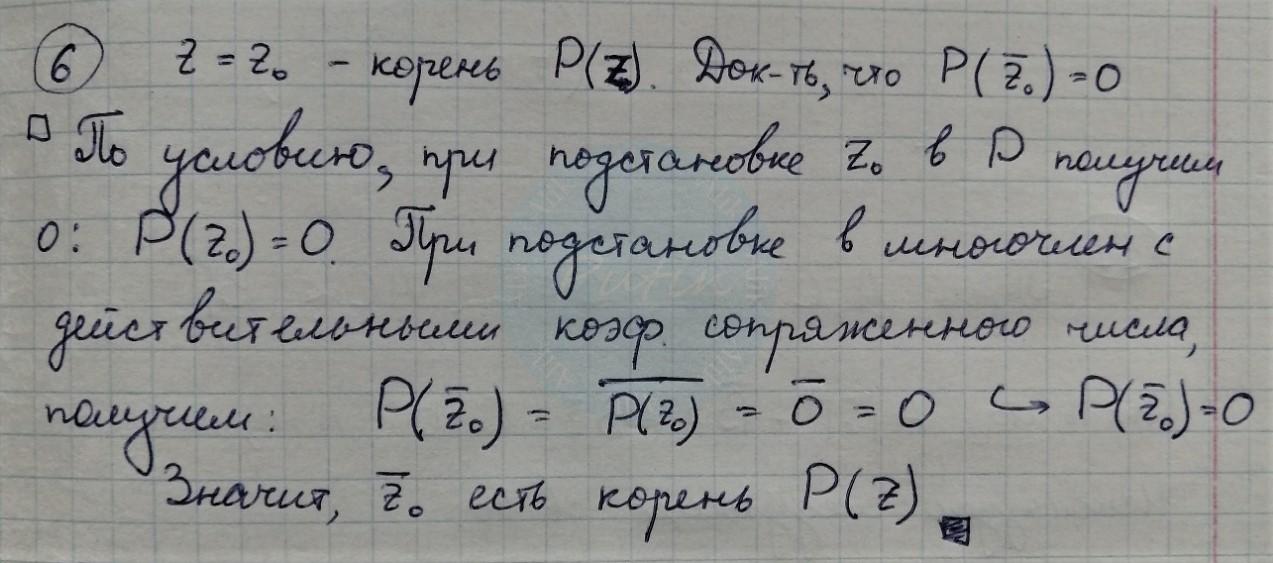 6 z = z₀ - корень P(z). Док-ть, что P(z̄₀) = 0
□ По условию, при подстановке z₀ в P получим
0: P(z₀) = 0. При подстановке в многочлен с
действительными коэф. сопряженного числа,
получим: P(z̄₀) = \overline{P(z₀)} = \overline{0} = 0 ↪ P(z̄₀) = 0
Значит, z̄₀ есть корень P(z) ■